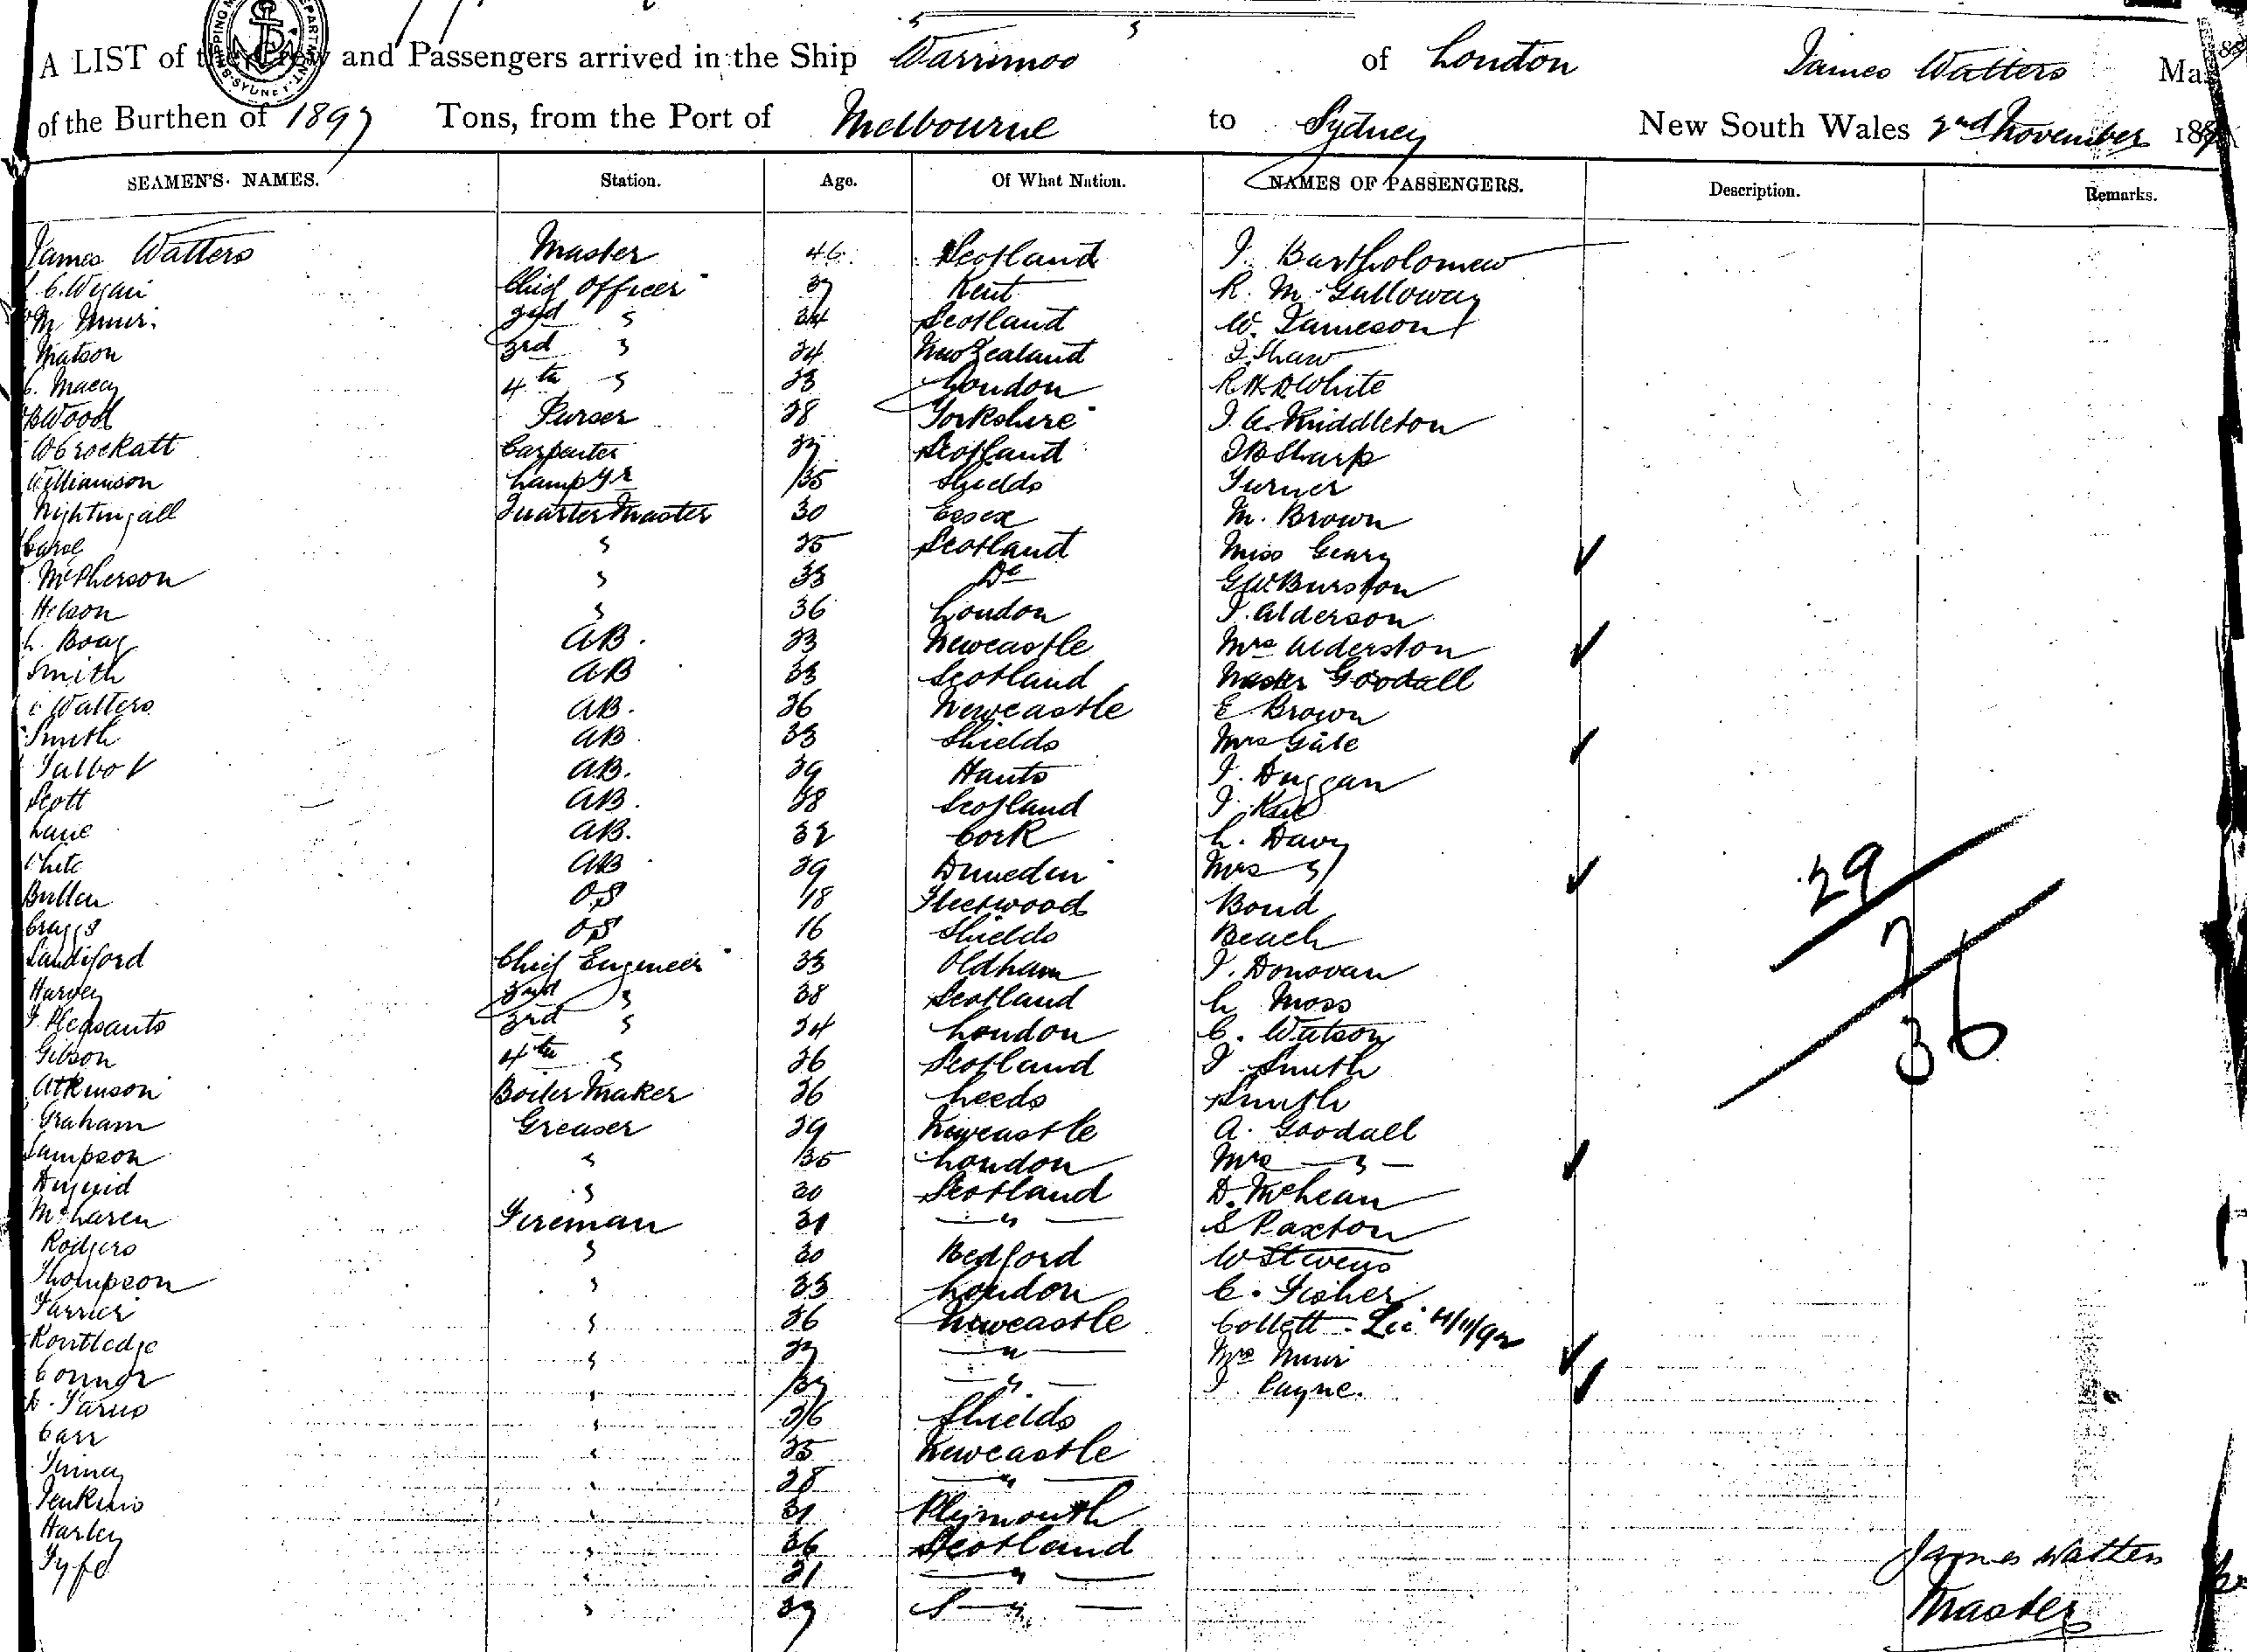 A LIST of the Crew and Passengers arrived in the Ship Warrimoo of London James Watters Ma
of the Burthen of 1897 Tons, from the Port of Melbourne to Sydney New South Wales 2nd November 18
SEAMEN'S NAMES. Station. Age. Of What Nation. NAMES OF PASSENGERS. Description. Remarks.
James Watters Master 46 Scotland J. Bartholomew
Chief Officer 37 Kent R. M. Galloway
M Muir 2nd " 34 Scotland W. Jameson
Matson 3rd " 24 New Zealand J. Shaw
C. Macey 4th " 23 London R.H.D. White
Wood Purser 28 Yorkshire J. A. Middleton
W Crockatt Carpenter 27 Scotland J B Sharp
Williamson Lamp Tr 35 Shields Turner
Nightingall Quarter Master 30 Essex M. Brown
" 25 Scotland Miss Geary
McPherson " 33 Do G W Burston
" 36 London J. Alderson
AB. 23 Newcastle Mrs Alderston
Smith AB 33 Scotland Master Goodall
Watters AB. 26 Newcastle E Brown
Smith AB 33 Shields Mrs Gale
Talbot AB. 39 Hants J. Duggan
Scott AB. 28 Scotland J.
Lane AB. 32 Cork L. Davy
White AB 39 Dunedin Mrs "
Bullen OS 18 Fleetwood Bond 29
Craggs OS 16 Shields Beach 7
Sandiford Chief Engineer 33 Oldham J. Donovan
Harvey 2nd " 38 Scotland L Moss
J. Pleasants 3rd " 24 London C. Watson 36
Gibson 4th " 26 Scotland J Smith
Atkinson Boiler Maker 26 Leeds Smith
Graham Greaser 29 Newcastle A. Goodall
Sampson " 35 London Mrs — " —
Duguid " 30 Scotland D. McLean
McLaren Fireman 31 — " — S Paxton
Rodgers " 30 Bedford W Stevens
Thompson " 33 London C. Fisher
Farrier " 26 Newcastle Collett
Routledge " 27 — " — Mrs Muir
Connor " 37 — " — J Payne.
" 26 Shields
Carr " 25 Newcastle
" 28 — " —
Jenkins " 31 Plymouth
Harley " 26 Scotland James Watters
Fyfe " 21 — " —
" 37 — " — Master